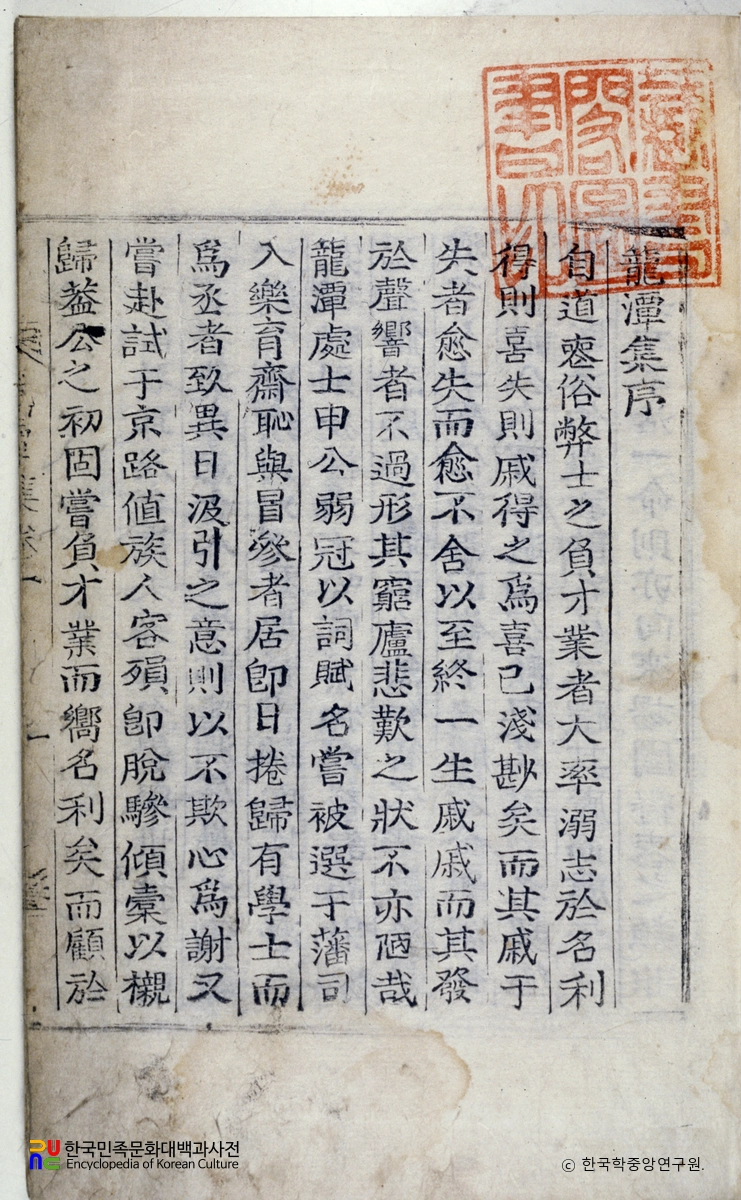 龍潭集序
自道喪俗弊士之負才業者大率溺志於名利
得則喜失則戚得之爲喜已淺尠矣而其戚于
失者愈失而愈不舍以至終一生戚戚而其發
於聲響者不過形其窮廬悲歎之狀不亦陋哉
龍潭處士申公弱冠以詞賦名嘗被選于藩司
入樂育齋恥與冒參者居卽日捲歸有學士而
爲丞者致異日汲引之意則以不欺心爲謝又
嘗赴試于京路値族人客殞卽脫驂傾橐以櫬
歸蓋公之初固嘗負才業而嚮名利矣而顧於
한국민족문화대백과사전
Encyclopedia of Korean Culture
ⓒ 한국학중앙연구원.